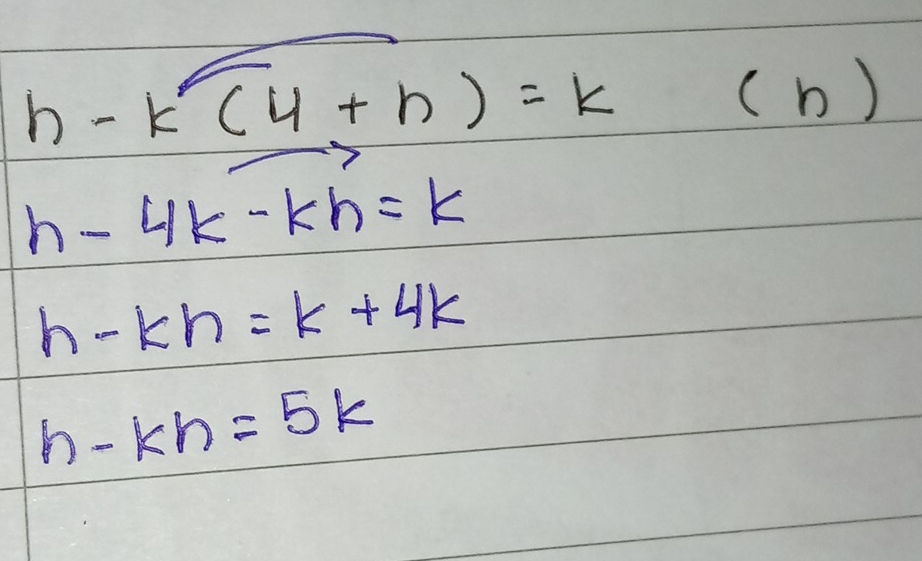 h - k (4 + h) = k (h)
h - 4k - kh = k
h - kh = k + 4k
h - kh = 5k